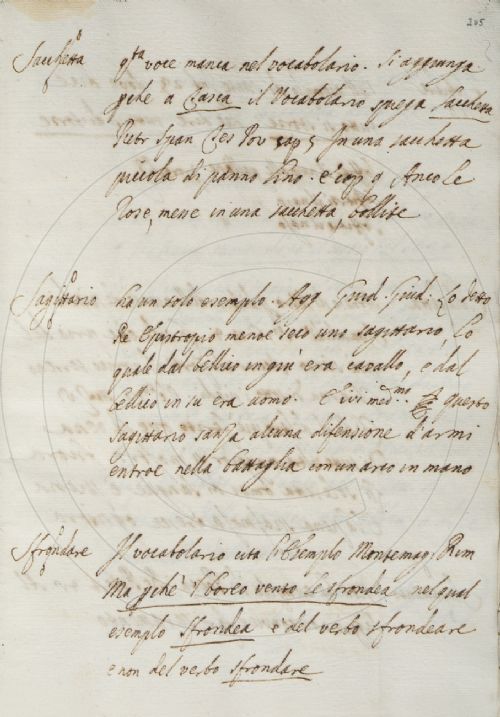 205
Sacchetta qta voce manca nel vocabolario. Si aggiunga
pche a Tasca il Vocabolario spiega Sacchetta
Pietr Span Tes Pov cap 5 In una sacchetta
piccola di panno lino. e cap 9 Anco le
Rose, mene in una sacchetta, bollite
Sagittario ha un solo esemplo. Agg Guid. Giud: Lo detto
Re Epistropio menoe seco uno sagittario, lo
quale dal bellico in giù era cavallo, e dal
bellico in su era uomo. E ivi med.mo questo
sagittario sanza alcuna difensione d'armi
entroe nella battaglia con un arco in mano
Sfrondare Il vocabolario cita l'Esemplo Montemag: Rim
Ma pche 'l boreo vento le sfrondea nel qual
esemplo Sfrondea è del verbo sfrondeare
e non del verbo sfrondare